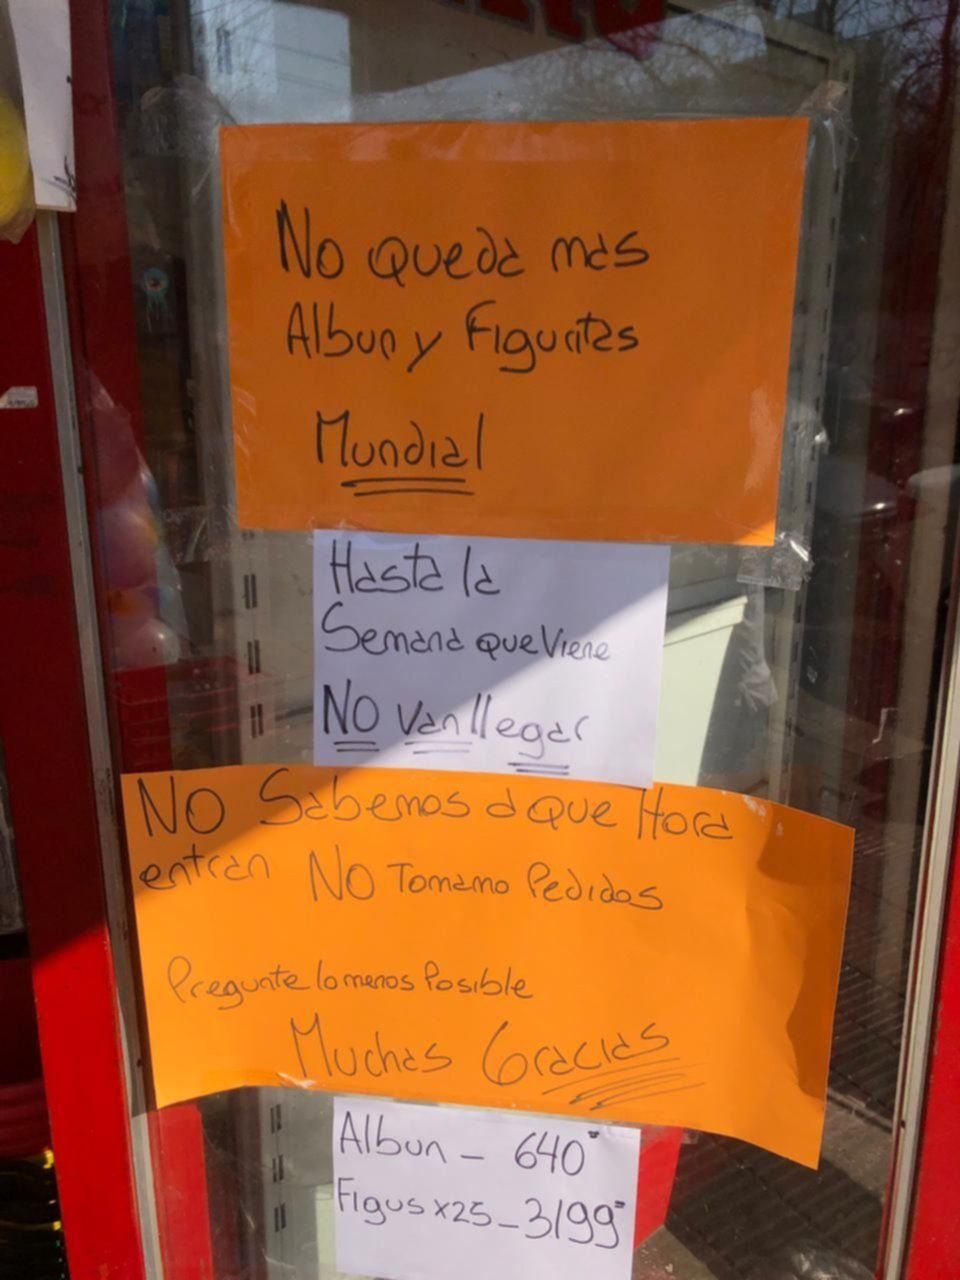 No queda mas
Albun y Figuritas
Mundial
Hasta la
Semana que Viene
NO Van llegar
NO Sabemos a que Hora
entran NO Tomamo Pedidos
Pregunte lo menos Posible
Muchas Gracias
Albun - 640
Figus x25 - 3199